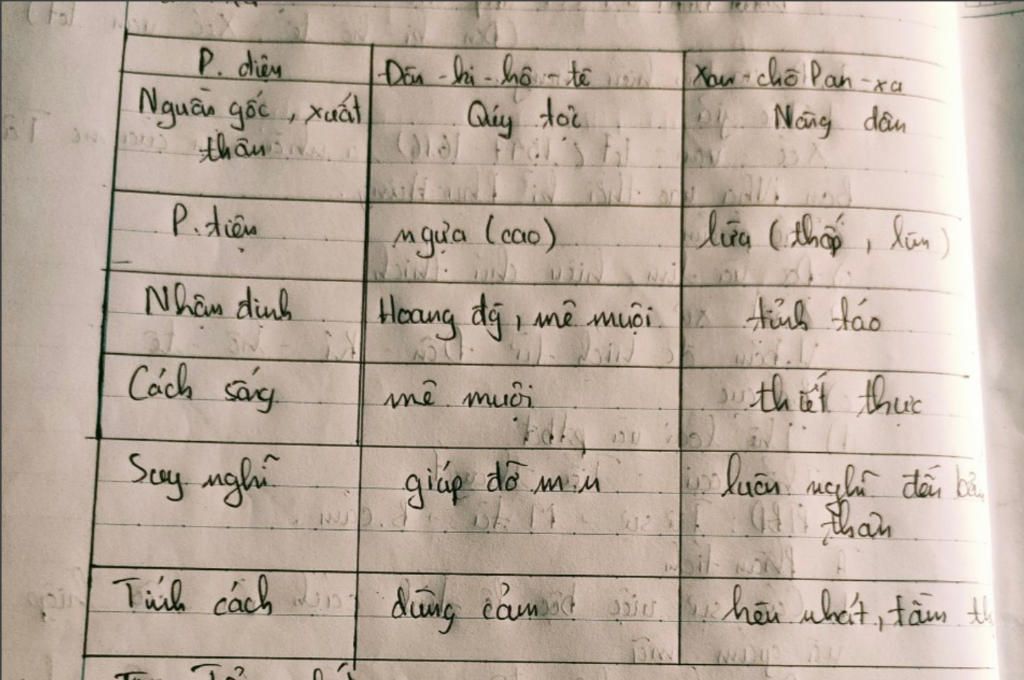 P. diện Đôn-ki-hô-tê Xan-chô Pan-xa
Nguồn gốc, xuất Quý tộc Nông dân
thân
P. tiện ngựa (cao) lừa (thấp, lùn)
Nhận định Hoang đg, mê muội tỉnh táo
Cách sống mê muội thiết thực
Suy nghĩ giúp đỡ m.n luôn nghĩ đến
thân
Tính cách dũng cảm hèn nhát, tầm